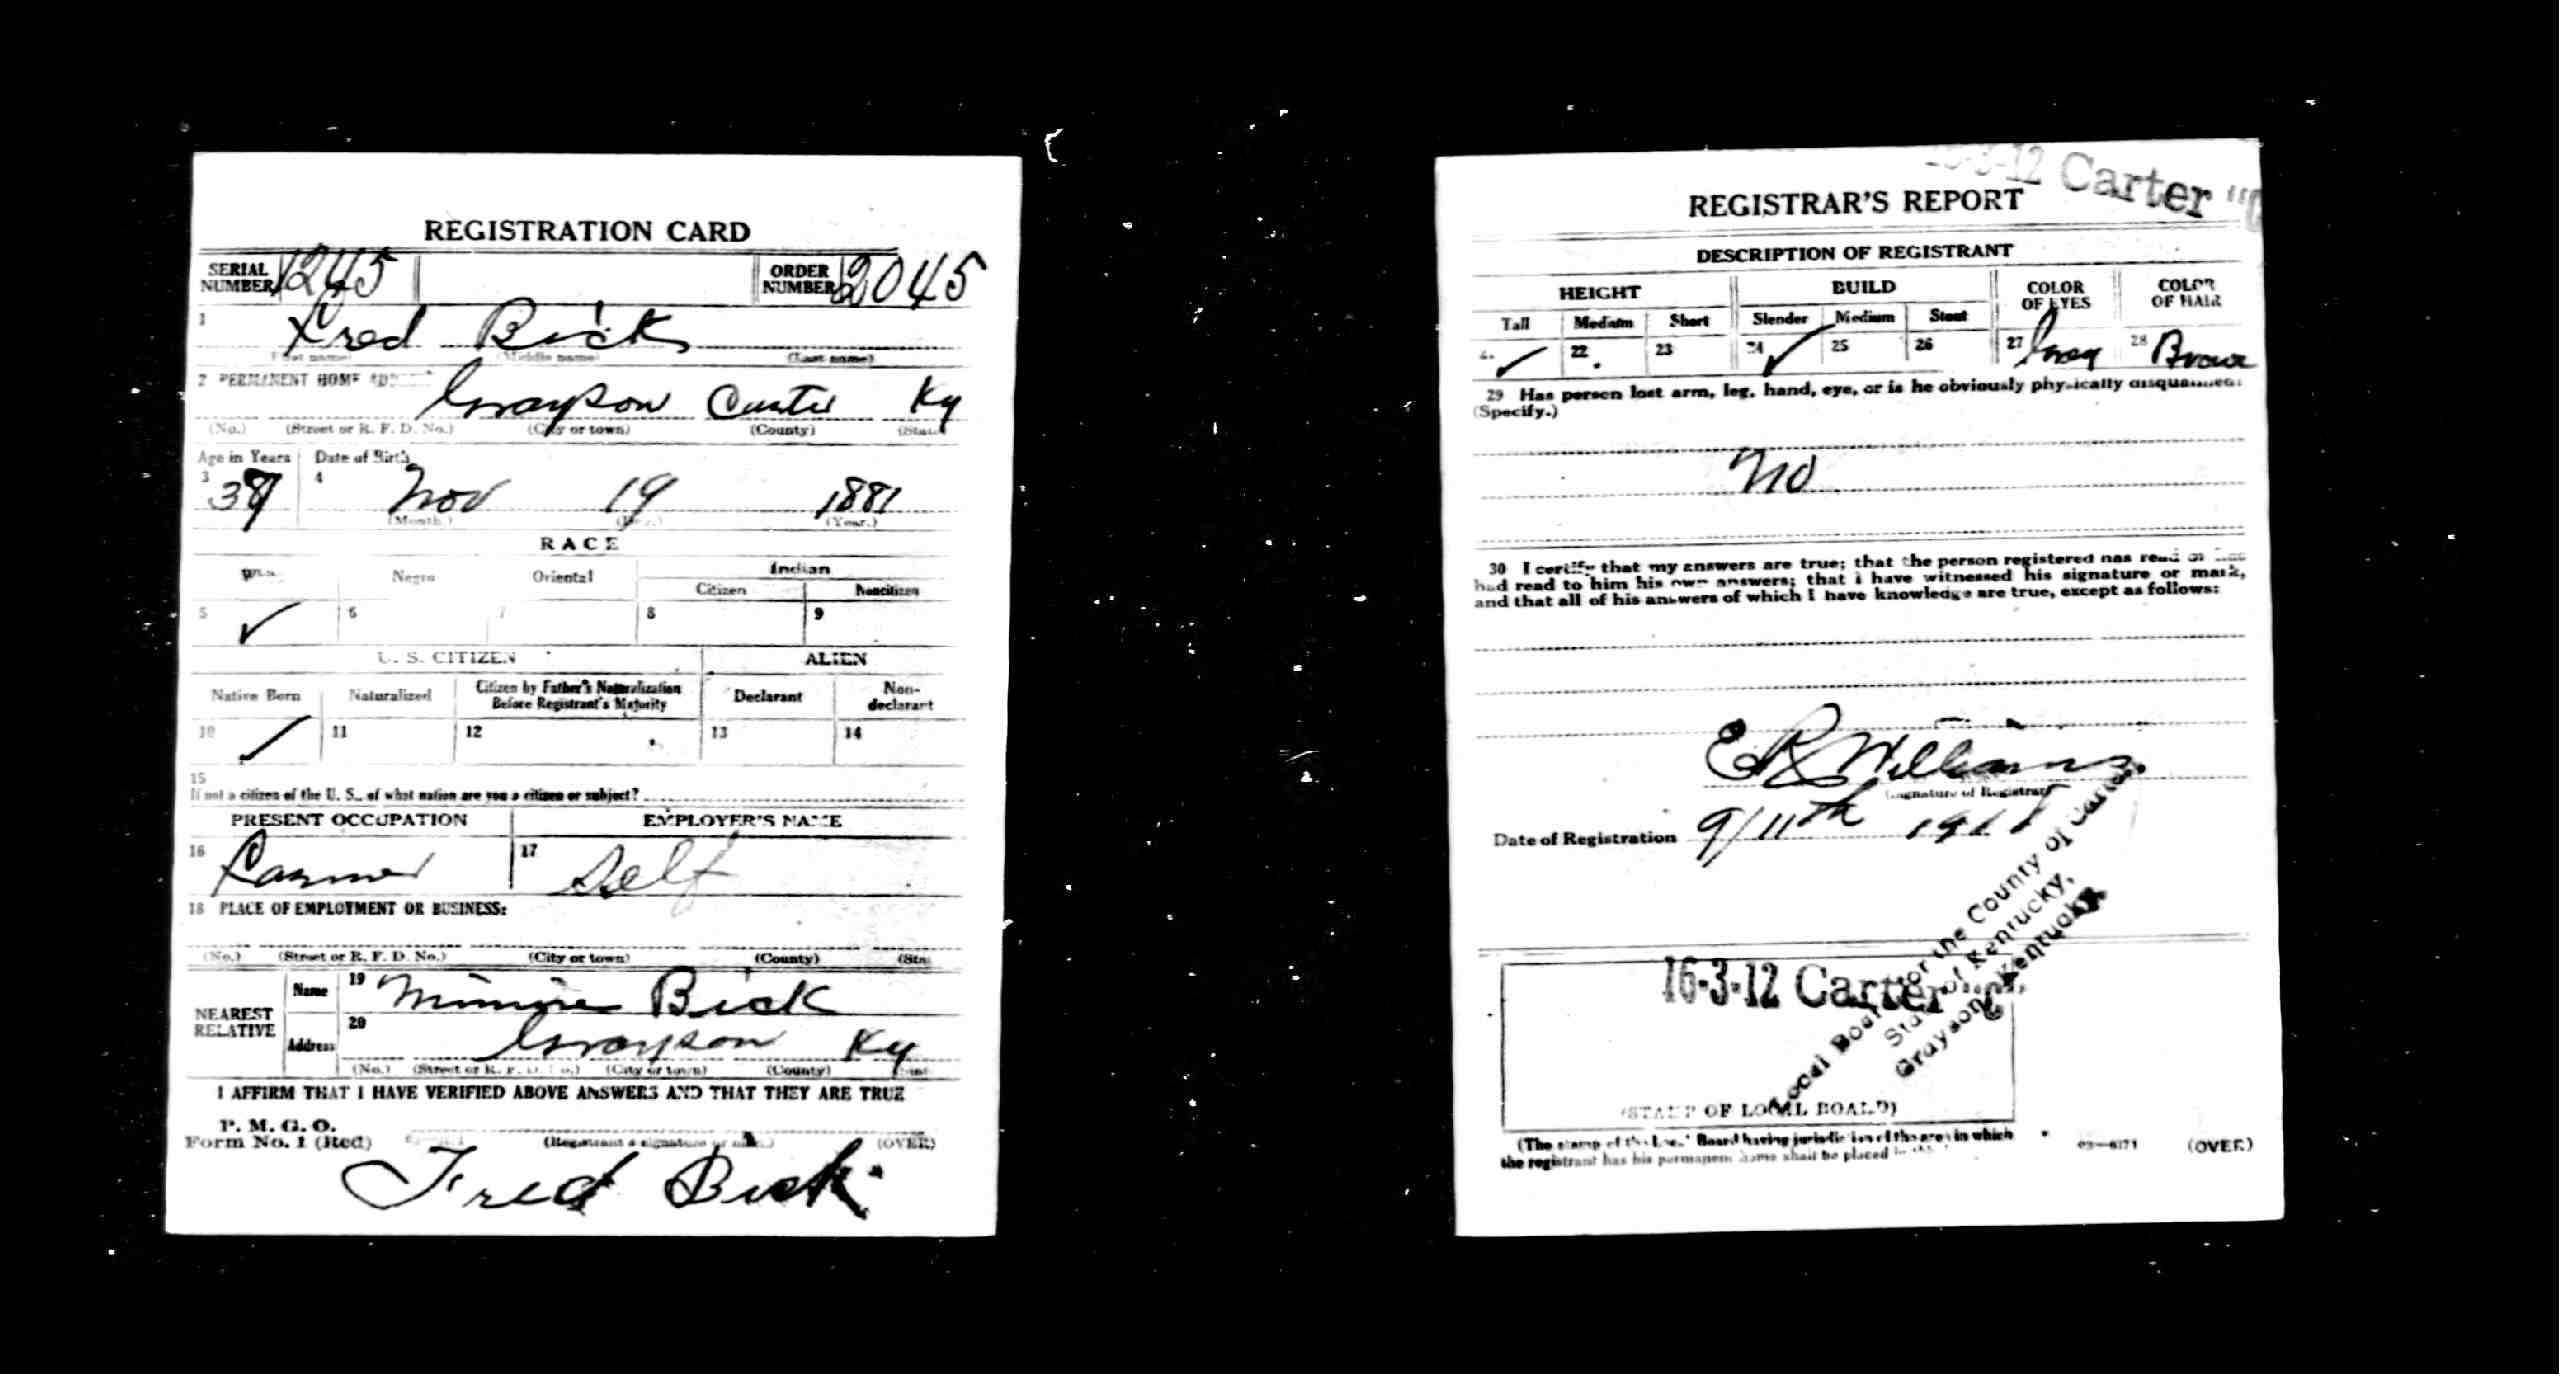 REGISTRATION CARD
SERIAL NUMBER 1245 ORDER NUMBER 2045
1 Fred Bick
(First name) (Middle name) (Last name)
2 PERMANENT HOME
Grayson Carter Ky
(No.) (Street or R. F. D. No.) (City or town) (County) (State)
Age in Years Date of Birth
3 4 Nov 19 1881
(Month.) (Day.) (Year.)
RACE
Negro Oriental Indian
Citizen Noncitizen
5 ✓ 6 7 8 9
U. S. CITIZEN ALIEN
Native Born Naturalized Citizen by Father's Naturalization Before Registrant's Majority Declarant Non-declarant
10 ✓ 11 12 13 14
15
If not a citizen of the U. S., of what nation are you a citizen or subject?
PRESENT OCCUPATION EMPLOYER'S NAME
16 Farmer 17 Self
18 PLACE OF EMPLOYMENT OR BUSINESS:
(No.) (Street or R. F. D. No.) (City or town) (County)
NEAREST RELATIVE Name 19 Minnie Bick
Address 20 Grayson Ky
(No.) (Street or R. F. D. No.) (City or town) (County)
I AFFIRM THAT I HAVE VERIFIED ABOVE ANSWERS AND THAT THEY ARE TRUE
P. M. G. O.
Form No. 1 (Red) (Registrant's signature or mark) (OVER)
Fred Bick
Carter
REGISTRAR'S REPORT
DESCRIPTION OF REGISTRANT
HEIGHT BUILD COLOR OF EYES COLOR OF HAIR
Tall Medium Short Slender Medium Stout
✓ 22 23 24 ✓ 25 26 27 Gray 28 Brown
29 Has person lost arm, leg, hand, eye, or is he obviously physically disqualified?
(Specify.)
No
30 I certify that my answers are true; that the person registered has read or has
had read to him his own answers; that I have witnessed his signature or mark,
and that all of his answers of which I have knowledge are true, except as follows:
E R Williams
(Signature of Registrar)
Date of Registration 9/11th 1918
Local Board for the County of Carter,
State of Kentucky,
Grayson, Kentucky.
16-3-12 Carter
(STAMP OF LOCAL BOARD)
(The stamp of the Local Board having jurisdiction of the area in which
the registrant has his permanent home shall be placed
03—6171 (OVER)